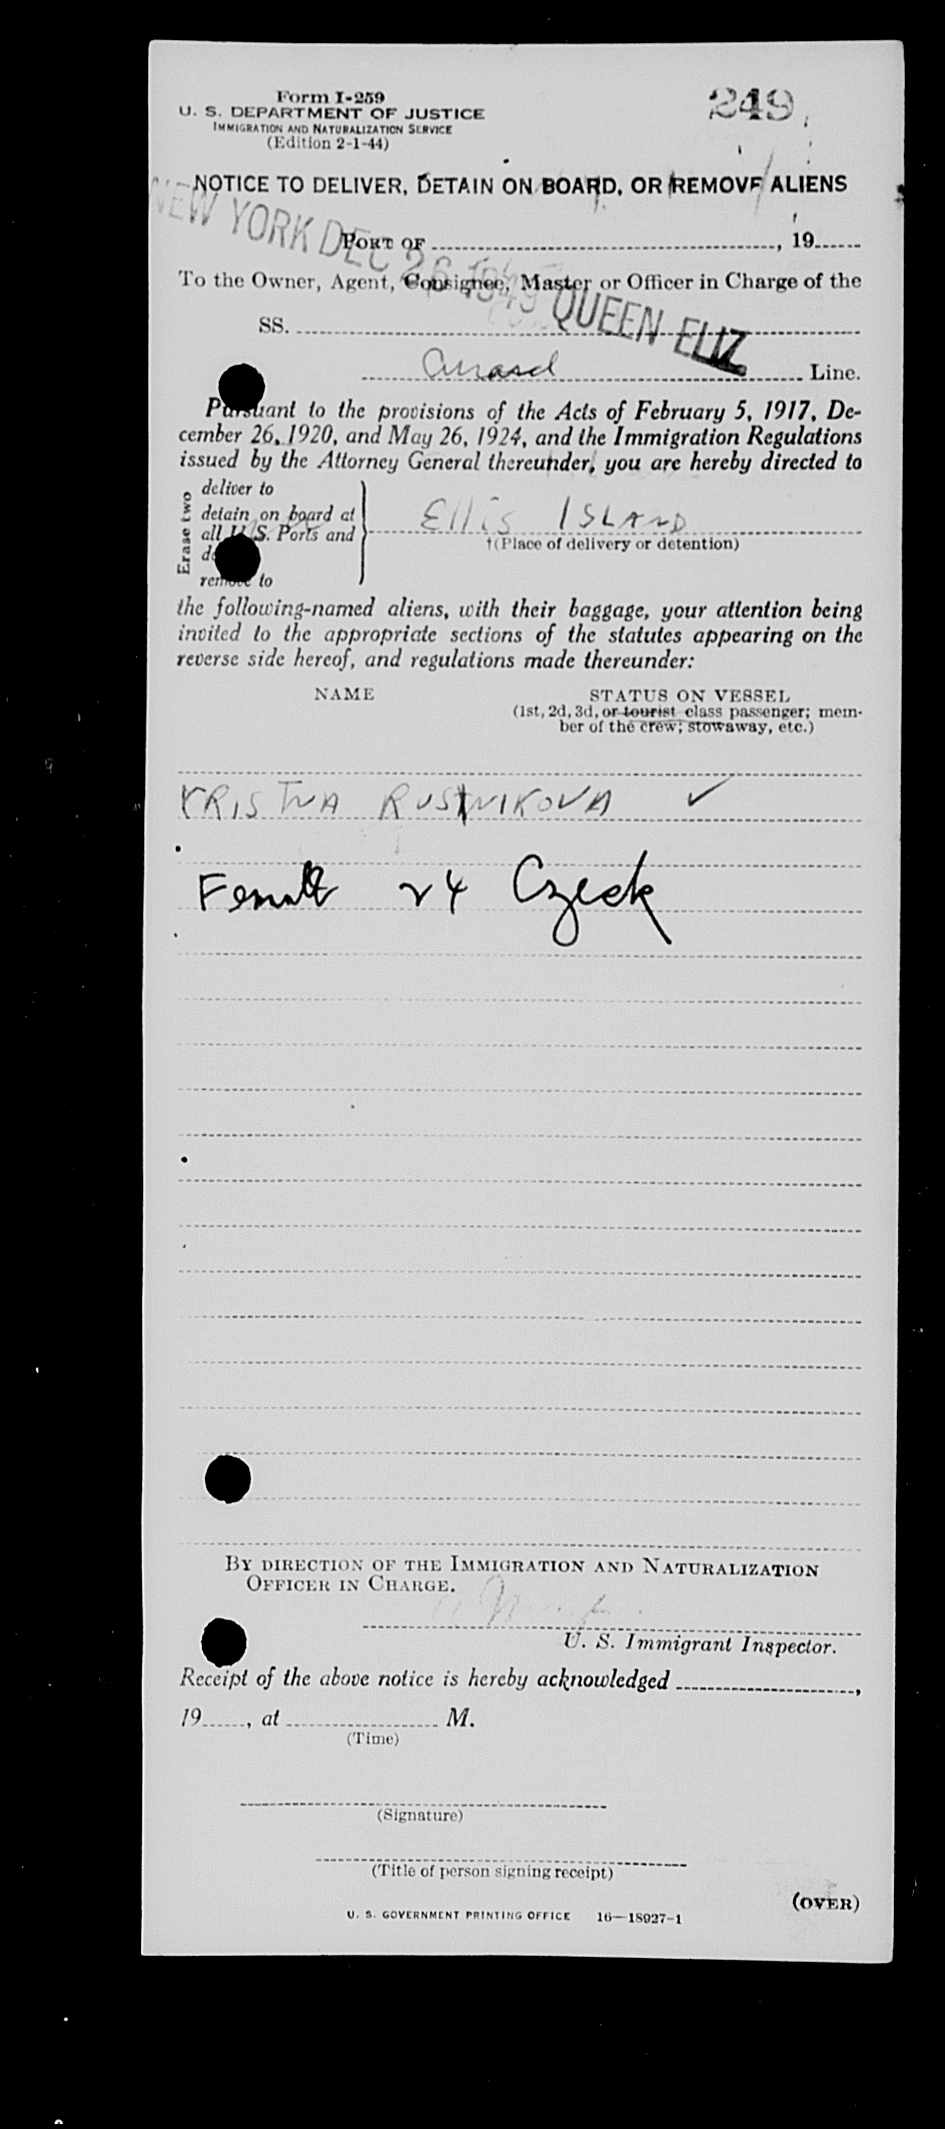 Form I-259
U. S. DEPARTMENT OF JUSTICE
IMMIGRATION AND NATURALIZATION SERVICE
(Edition 2-1-44)
249
NOTICE TO DELIVER, DETAIN ON BOARD, OR REMOVE ALIENS
NEW YORK DEC 26 1949
PORT OF , 19
To the Owner, Agent, Consignee, Master or Officer in Charge of the
SS. QUEEN ELIZ
Cunard Line.
Pursuant to the provisions of the Acts of February 5, 1917, De-
cember 26, 1920, and May 26, 1924, and the Immigration Regulations
issued by the Attorney General thereunder, you are hereby directed to
Erase two
deliver to
detain on board at
all U.S. Ports and
remove to
Ellis ISLAND
†(Place of delivery or detention)
the following-named aliens, with their baggage, your attention being
invited to the appropriate sections of the statutes appearing on the
reverse side hereof, and regulations made thereunder:
NAME STATUS ON VESSEL
(1st, 2d, 3d, or tourist class passenger; mem-
ber of the crew; stowaway, etc.)
KRISTINA RUSNIKOVA ✓
Female 24 Czeck
BY DIRECTION OF THE IMMIGRATION AND NATURALIZATION
OFFICER IN CHARGE.
U. S. Immigrant Inspector.
Receipt of the above notice is hereby acknowledged ,
19 , at M.
(Time)
(Signature)
(Title of person signing receipt)
(OVER)
U. S. GOVERNMENT PRINTING OFFICE 16—18927-1